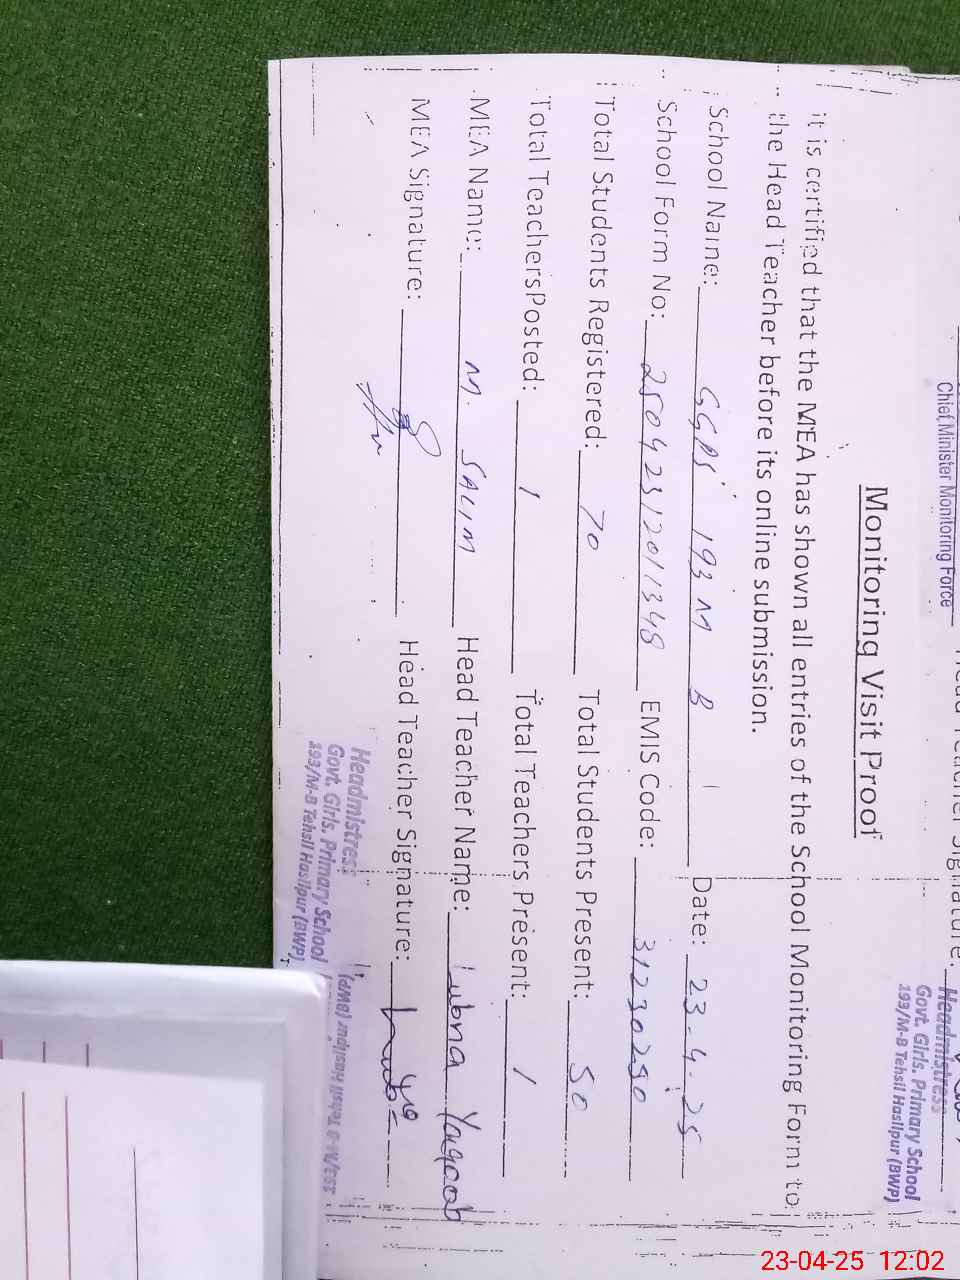 Chief Minister Monitoring Force
Headmistress
Govt. Girls. Primary School
193/M-B Tehsil Hasilpur (BWP)
Monitoring Visit Proof
it is certified that the MEA has shown all entries of the School Monitoring Form to
the Head Teacher before its online submission.
School Name: GGPS 193 M B Date: 23-4-25
School Form No: 25042312011348 EMIS Code: 31230290
Total Students Registered: 70 Total Students Present: 50
Total TeachersPosted: 1 Total Teachers Present: 1
MEA Name: M. SALIM Head Teacher Name: Lubna Yaqoob
MEA Signature: Head Teacher Signature:
Headmistress
Govt. Girls. Primary School
193/M-B Tehsil Hasilpur (BWP)
23-04-25 12:02